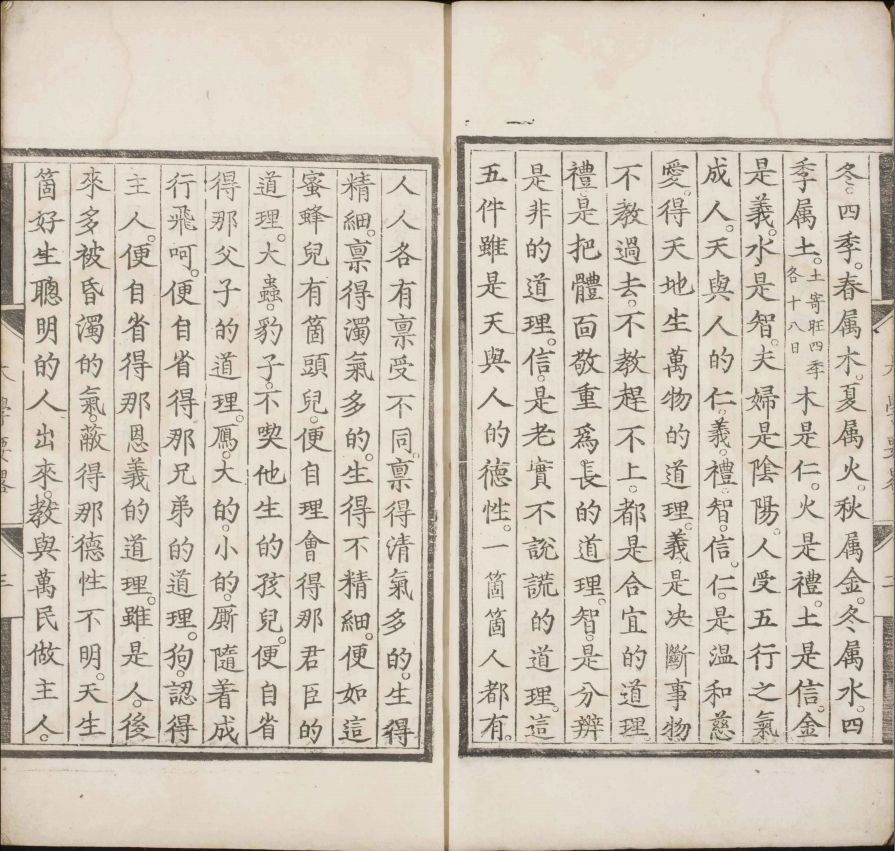 冬四季。春属木。夏属火。秋属金。冬属水。四
季属土。土寄旺四季各十八日木是仁。火是禮。土是信。金
是義。水是智。夫婦是陰陽。人受五行之氣
成人。天與人的仁。義。禮。智。信。仁。是温和慈
愛。得天地生萬物的道理。義。是决斷事物
不教過去。不教趕不上。都是合宜的道理
禮。是把體面敬重爲長的道理。智。是分辨
是非的道理。信。是老實不說謊的道理。這
五件雖是天與人的德性。一箇箇人都有。
人人各有禀受不同。禀得清氣多的。生得
精細。禀得濁氣多的。生得不精細。便如這
蜜蜂兒有箇頭兒。便自理會得那君臣的
道理。大蟲。豹子。不喫他生的孩兒。便自省
得那父子的道理。鴈。大的。小的。厮隨着成
行飛呵。便自省得那兄弟的道理。狗。認得
主人。便自省得那恩義的道理。雖是人。後
來多被昏濁的氣。蔽得那德性不明。天生
箇好生聰明的人出來。教與萬民做主人。
大學要畧
二
大學要畧
三